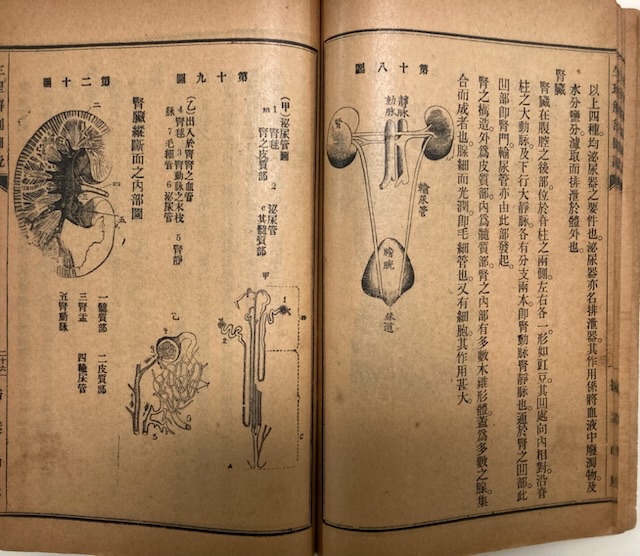 以上四種。均泌尿器之要件也。泌尿器亦名排泄器。其作用係將血液中廢濁物及
水分鹽分。濾取而排泄於體外也。
腎臟
腎臟在腹腔之後部。位於脊柱之兩側。左右各一。形如豇豆。其凹處向內相對。沿脊
柱之大動脈及下行大靜脈。各有分支兩本。卽腎動脈腎靜脈也。通於腎之凹部。此
凹部卽腎門。輸尿管亦由此部發起。
腎之構造。外爲皮質部。內爲髓質部。腎之內部。有多數木錐形體。蓋爲多數之腺集
合而成者也。腺細而光潤。卽毛細管也。又有細胞。其作用甚大。
第十八圖
靜脈
動脈
腎
輸尿管
膀胱
尿道
第十九圖
(甲)泌尿管圖
1 腎毬 2 泌尿管
m 腎之皮質部 e 其髓質部
(乙)出入於腎臟之血管
4 腎毬 3 腎動脈之末枝 5 腎靜
脈 7 毛細管 6 泌尿管
甲
1
2
乙
5
第二十圖
腎臟縱斷面之內部圖
二
四
五
一髓質部 二皮質部
三腎盂 四輸尿管
五腎動脈
二十六